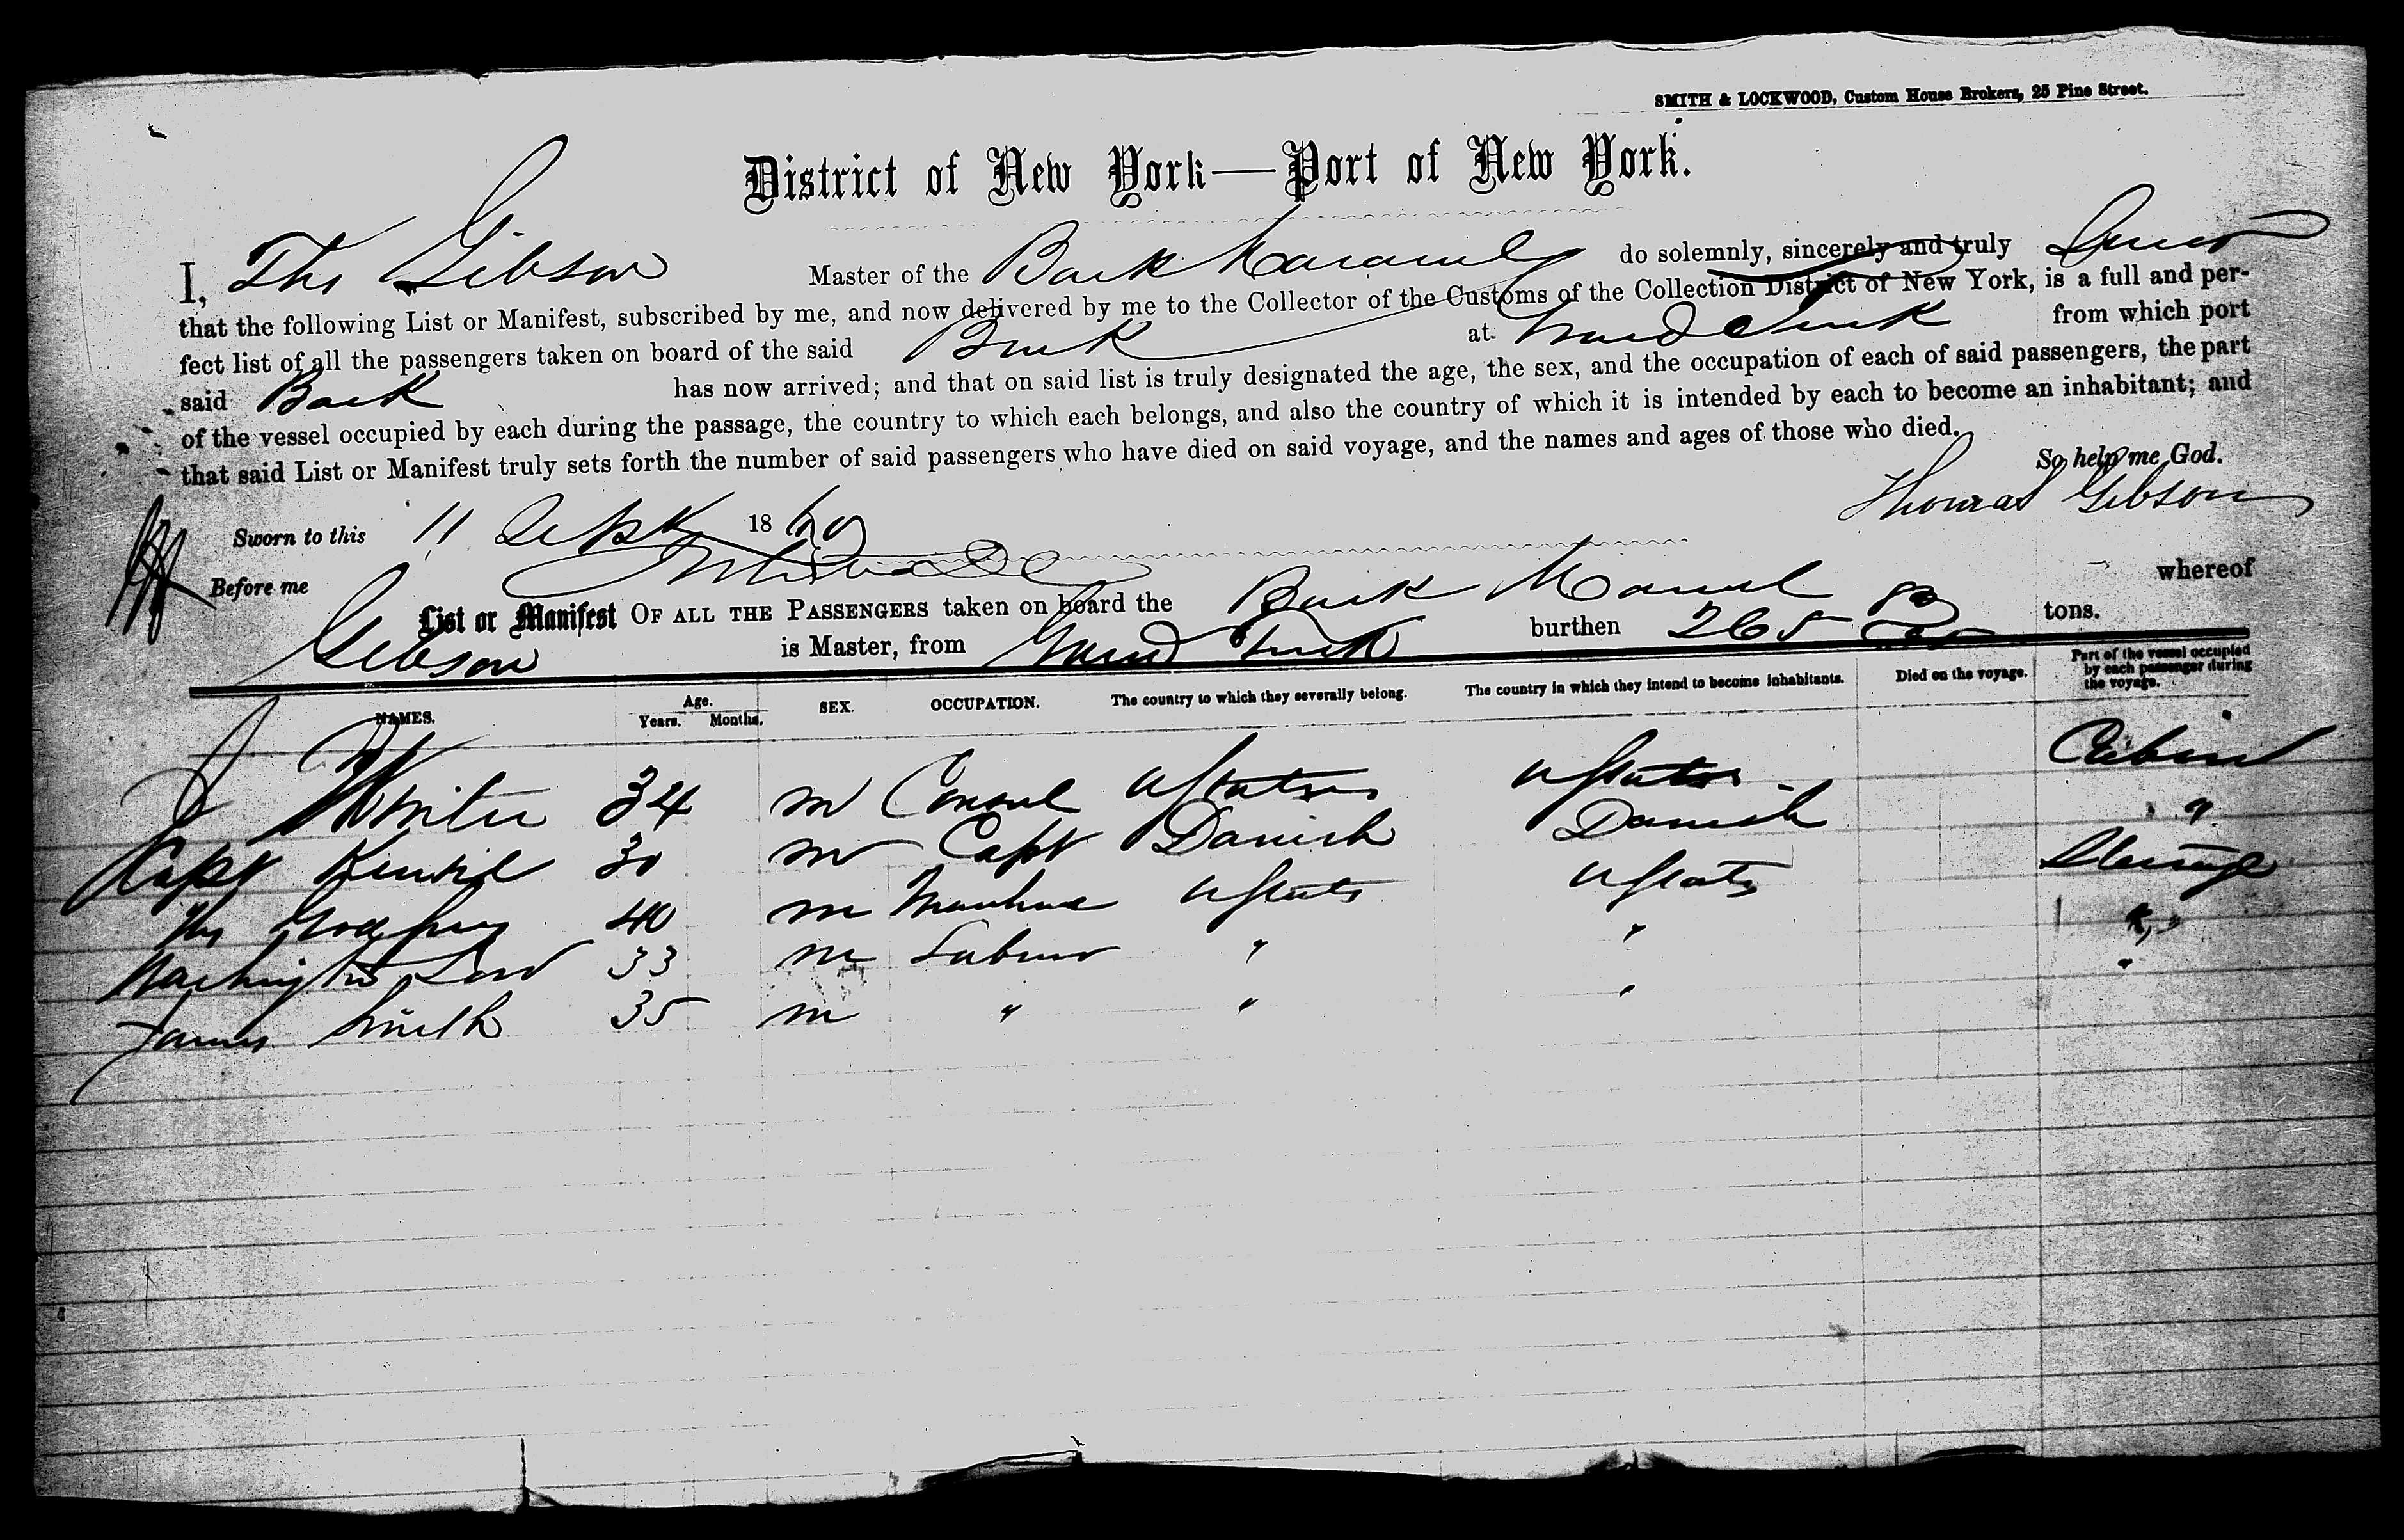 SMITH & LOCKWOOD, Custom House Brokers, 25 Pine Street.
District of New York—Port of New York.
I, Thos Gibson Master of the Bark do solemnly, sincerely and truly Swear
that the following List or Manifest, subscribed by me, and now delivered by me to the Collector of the Customs of the Collection District of New York, is a full and per-
fect list of all the passengers taken on board of the said Bark at Turk from which port
said Bark has now arrived; and that on said list is truly designated the age, the sex, and the occupation of each of said passengers, the part
of the vessel occupied by each during the passage, the country to which each belongs, and also the country of which it is intended by each to become an inhabitant; and
that said List or Manifest truly sets forth the number of said passengers who have died on said voyage, and the names and ages of those who died.
So help me God.
Thomas Gibson
Sworn to this 11 Sept 1860
Before me
List or Manifest OF ALL THE PASSENGERS taken on board the Bark whereof
Gibson is Master, from Grand Turk burthen 265 tons.
NAMES. Age. Years. Months. SEX. OCCUPATION. The country to which they severally belong. The country in which they intend to become inhabitants. Died on the voyage. Part of the vessel occupied by each passenger during the voyage.
J 34 m Consul UStates UStates Cabin
Capt 30 m Capt Danish Danish "
Ths Godfrey 40 m UStats UStats Steerage
Washington 33 m Labour " " "
James Smith 35 m " " " "